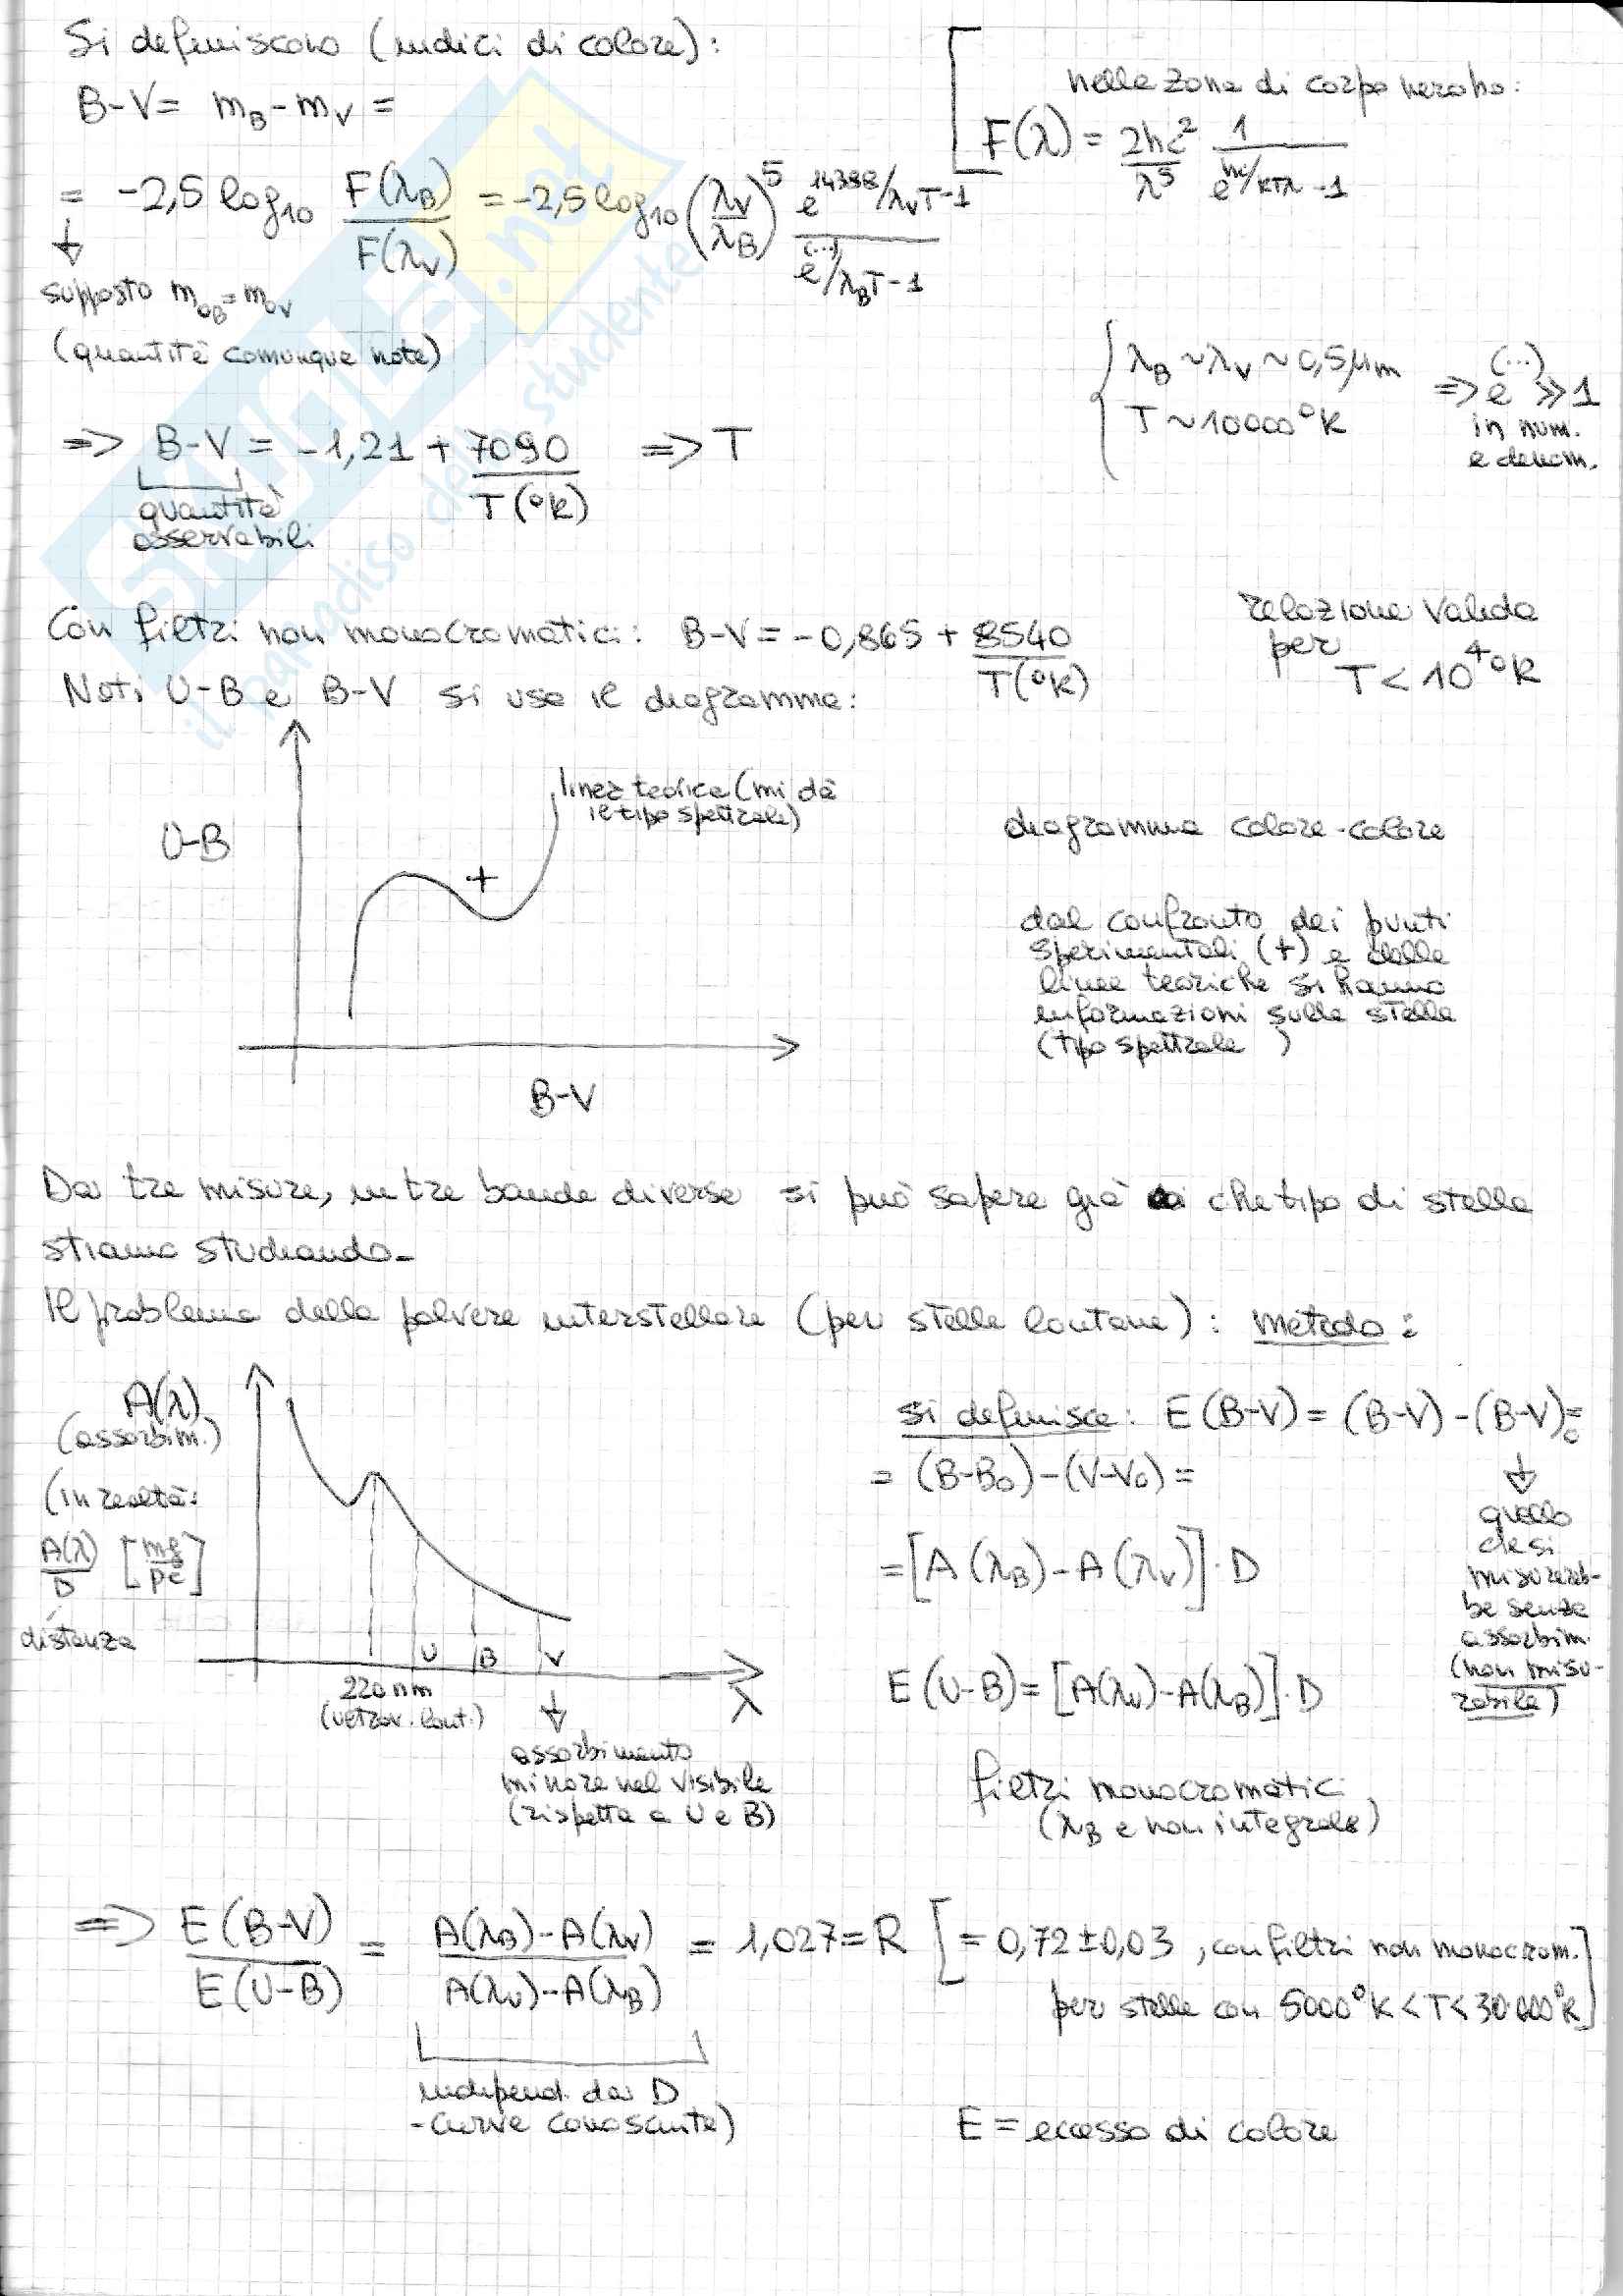 Si definiscono (indici di colore):
B-V = m_B - m_V =
= -2,5 log₁₀ F(λ_B)/F(λ_V) = -2,5 log₁₀ (λ_V/λ_B)⁵ (e^{14388/λ_V T} -1)/(e^{(...)/λ_B T} -1)
nella zona di corpo nero ho:
F(λ) = 2hc²/λ⁵ 1/(e^{hc/KTλ} -1)
supposto m_{0B} = m_{0V}
(quantità comunque note)
λ_B ~ λ_V ~ 0,5 μm
T ~ 10000 °K
=> e^{(...)} >> 1
in num.
e denom.
=> B-V = -1,21 + 7090/T(°K) => T
quantità
osservabili
Con filtri non monocromatici: B-V = -0,865 + 8540/T(°K)
relazione valida
per
T < 10⁴ °K
Noti U-B e B-V si usa il diagramma:
U-B
linea teorica (mi dà
il tipo spettrale)
+
B-V
diagramma colore-colore
dal confronto dei punti
sperimentali (+) e delle
linee teoriche si hanno
informazioni sulle stelle
(tipo spettrale )
Da tre misure, in tre bande diverse si può sapere già che tipo di stella
stiamo studiando.
Il problema della polvere interstellare (per stelle lontane): metodo:
A(λ)
(assorbim.)
(in realtà:
A(λ)/D [mg/pc]
distanza
U B V
220 nm
(ultrav. lont.)
λ
assorbimento
minore nel visibile
(rispetto a U e B)
si definisce: E(B-V) = (B-V) - (B-V)₀ =
= (B-B₀) - (V-V₀) =
= [A(λ_B) - A(λ_V)]·D
quello
che si
misurereb-
be senza
assorbim.
(non misu-
rabile)
E(U-B) = [A(λ_U) - A(λ_B)]·D
filtri monocromatici
(λ_B e non integrale)
=> E(B-V)/E(U-B) = (A(λ_B) - A(λ_V))/(A(λ_U) - A(λ_B)) = 1,027 = R [= 0,72 ± 0,03, con filtri non monocrom.
per stelle con 5000°K < T < 30.000°K]
independ. da D
-curve conosciute)
E = eccesso di colore
SKUOLA.net
il paradiso dello studente